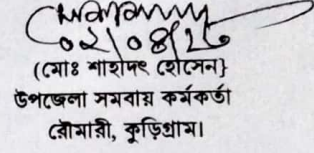 ০২/০৪/২৬
(মোঃ শাহাদৎ হোসেন)
উপজেলা সমবায় কর্মকর্তা
রৌমারী, কুড়িগ্রাম।